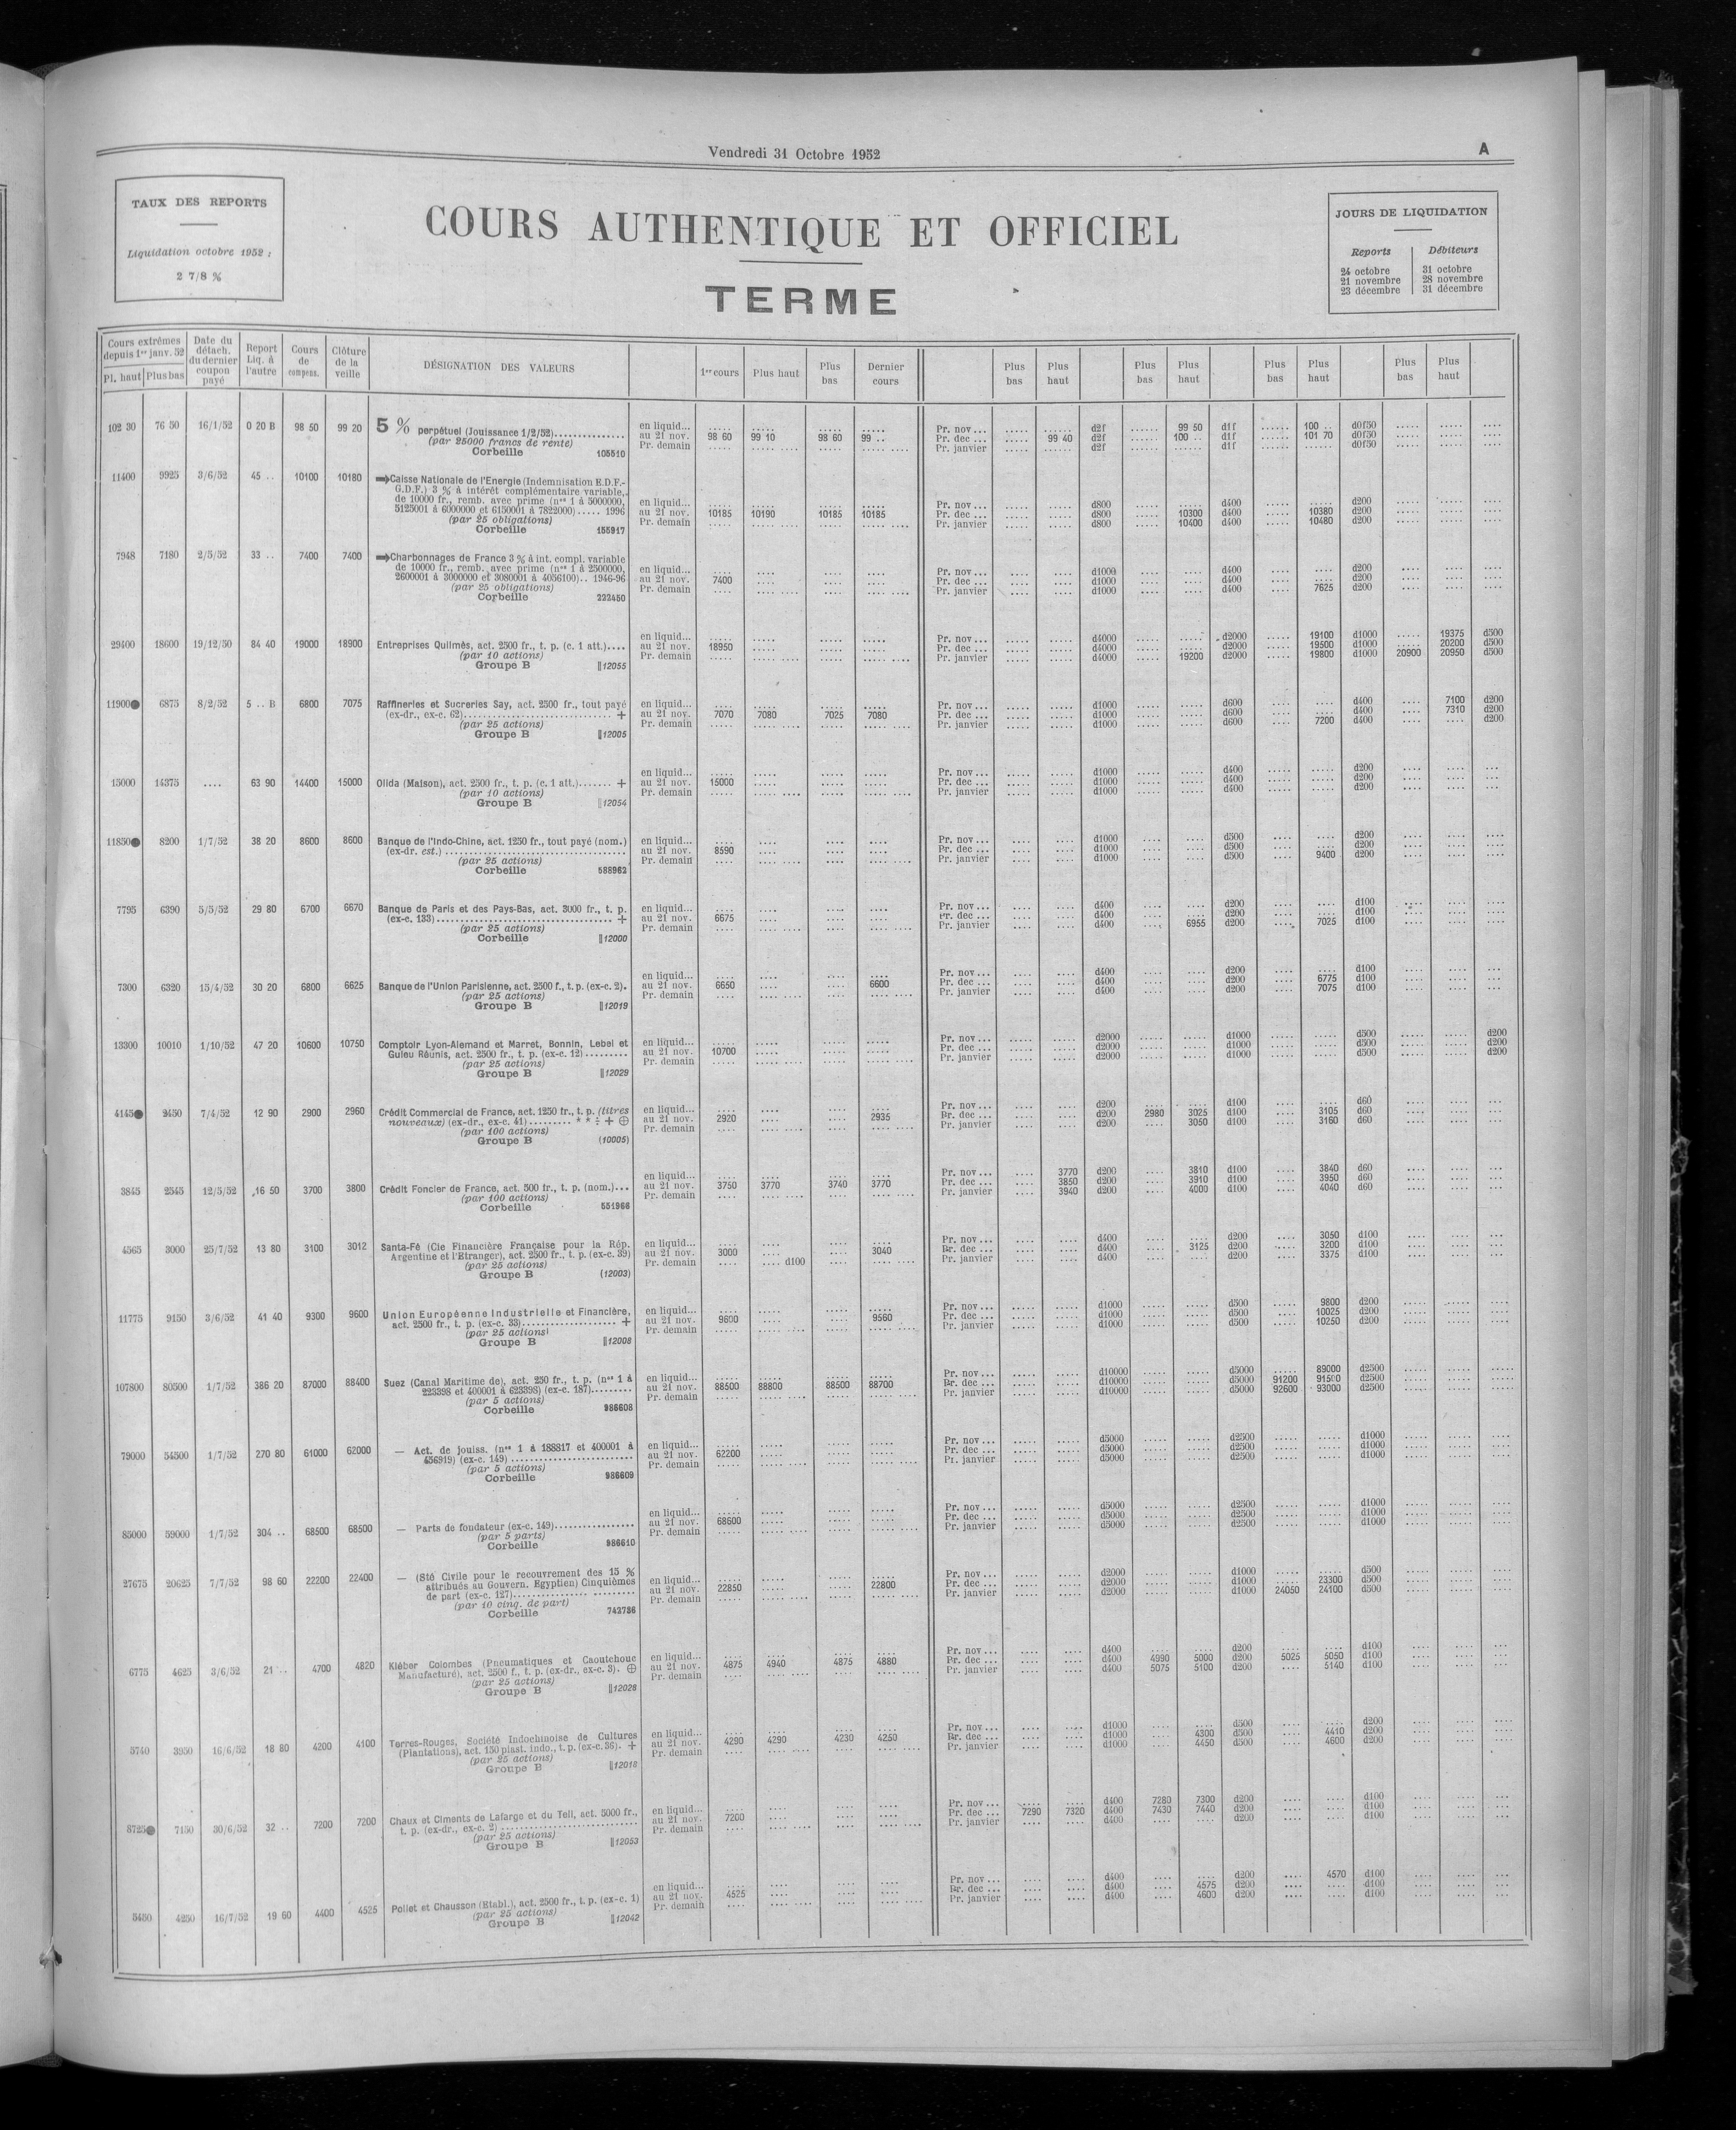 Vendredi 31 Octobre 1952
A
TAUX DES REPORTS
Liquidation octobre 1952 :
2 7/8 %
COURS AUTHENTIQUE ET OFFICIEL
TERME
JOURS DE LIQUIDATION
Reports Débiteurs
24 octobre 31 octobre
21 novembre 28 novembre
23 décembre 31 décembre
Cours extrêmes depuis 1er janv. 52
Pl. haut Plus bas
Date du détach. du dernier coupon payé
Report Liq. à l'autre
Cours de compens.
Clôture de la veille
DÉSIGNATION DES VALEURS
1er cours Plus haut Plus bas Dernier cours
Plus bas Plus haut Plus bas Plus haut Plus bas Plus haut Plus bas Plus haut
102 30 76 50 16/1/52 0 20 B 98 50 99 20
5 % perpétuel (Jouissance 1/2/52)
(par 25000 francs de rente)
Corbeille 105510
en liquid...
au 21 nov. 98 60 99 10 98 60 99 ..
Pr. demain
Pr. nov... d2f 99 50 d1f 100 .. d0f50
Pr. dec ... 99 40 d2f 100 .. d1f 101 70 d0f50
Pr. janvier d2f d1f d0f50
11400 9925 3/6/52 45 .. 10100 10180
Caisse Nationale de l'Energie (Indemnisation E.D.F.-
G.D.F.) 3 % à intérêt complémentaire variable,
de 10000 fr., remb. avec prime (nos 1 à 5000000,
5125001 à 6000000 et 6150001 à 7822000)..... 1996
(par 25 obligations)
Corbeille 155917
en liquid...
au 21 nov. 10185 10190 10185 10185
Pr. demain
Pr. nov... d800 d400 d200
Pr. dec ... d800 10300 d400 10380 d200
Pr. janvier d800 10400 d400 10480 d200
7948 7180 2/5/52 33 .. 7400 7400
Charbonnages de France 3 % à int. compl. variable
de 10000 fr., remb. avec prime (nos 1 à 2500000,
2600001 à 3000000 et 3080001 à 4056100).. 1946-96
(par 25 obligations)
Corbeille 222450
en liquid...
au 21 nov. 7400
Pr. demain
Pr. nov... d1000 d400 d200
Pr. dec ... d1000 d400 d200
Pr. janvier d1000 d400 7625 d200
29400 18600 19/12/50 84 40 19000 18900
Entreprises Quilmès, act. 2500 fr., t. p. (c. 1 att.)....
(par 10 actions)
Groupe B ||12055
en liquid...
au 21 nov. 18950
Pr. demain
Pr. nov... d4000 d2000 19100 d1000 19375 d500
Pr. dec ... d4000 d2000 19500 d1000 20200 d500
Pr. janvier d4000 19200 d2000 19800 d1000 20900 20950 d500
11900● 6875 8/2/52 5 .. B 6800 7075
Raffineries et Sucreries Say, act. 2500 fr., tout payé
(ex-dr., ex-c. 62) +
(par 25 actions)
Groupe B ||12005
en liquid...
au 21 nov. 7070 7080 7025 7080
Pr. demain
Pr. nov... d1000 d600 d400 7100 d200
Pr. dec ... d1000 d600 d400 7310 d200
Pr. janvier d1000 d600 7200 d400 d200
15000 14375 .... 63 90 14400 15000
Olida (Maison), act. 2500 fr., t. p. (c. 1 att.)....... +
(par 10 actions)
Groupe B ||12054
en liquid...
au 21 nov. 15000
Pr. demain
Pr. nov... d1000 d400 d200
Pr. dec ... d1000 d400 d200
Pr. janvier d1000 d400 d200
11850● 8200 1/7/52 38 20 8600 8600
Banque de l'Indo-Chine, act. 1250 fr., tout payé (nom.)
(ex-dr. est.)
(par 25 actions)
Corbeille 588962
en liquid...
au 21 nov. 8590
Pr. demain
Pr. nov... d1000 d500 d200
Pr. dec ... d1000 d500 d200
Pr. janvier d1000 d500 9400 d200
7795 6390 5/5/52 29 80 6700 6670
Banque de Paris et des Pays-Bas, act. 3000 fr., t. p.
(ex-c. 133) +
(par 25 actions)
Corbeille ||12000
en liquid...
au 21 nov. 6675
Pr. demain
Pr. nov... d400 d200 d100
Pr. dec ... d400 d200 d100
Pr. janvier d400 6955 d200 7025 d100
7300 6320 15/4/52 30 20 6800 6625
Banque de l'Union Parisienne, act. 2500 f., t. p. (ex-c. 2).
(par 25 actions)
Groupe B ||12019
en liquid...
au 21 nov. 6650 6600
Pr. demain
Pr. nov... d400 d200 d100
Pr. dec ... d400 d200 6775 d100
Pr. janvier d400 d200 7075 d100
13300 10010 1/10/52 47 20 10600 10750
Comptoir Lyon-Alemand et Marret, Bonnin, Lebel et
Guieu Réunis, act. 2500 fr., t. p. (ex-c. 12)
(par 25 actions)
Groupe B ||12029
en liquid...
au 21 nov. 10700
Pr. demain
Pr. nov... d2000 d1000 d500 d200
Pr. dec ... d2000 d1000 d500 d200
Pr. janvier d2000 d1000 d500 d200
4145● 2450 7/4/52 12 90 2900 2960
Crédit Commercial de France, act. 1250 fr., t. p. (titres
nouveaux) (ex-dr., ex-c. 41)......... * * ÷ + ⊕
(par 100 actions)
Groupe B (10005)
en liquid...
au 21 nov. 2920 2935
Pr. demain
Pr. nov... d200 d100 d60
Pr. dec ... d200 2980 3025 d100 3105 d60
Pr. janvier d200 3050 d100 3160 d60
3845 2545 12/5/52 16 50 3700 3800
Crédit Foncier de France, act. 500 fr., t. p. (nom.)...
(par 100 actions)
Corbeille 551966
en liquid...
au 21 nov. 3750 3770 3740 3770
Pr. demain
Pr. nov... 3770 d200 3810 d100 3840 d60
Pr. dec ... 3850 d200 3910 d100 3950 d60
Pr. janvier 3940 d200 4000 d100 4040 d60
4565 3000 25/7/52 13 80 3100 3012
Santa-Fé (Cie Financière Française pour la Rép.
Argentine et l'Etranger), act. 2500 fr., t. p. (ex-c. 39)
(par 25 actions)
Groupe B (12003)
en liquid...
au 21 nov. 3000 3040
Pr. demain d100
Pr. nov... d400 d200 3050 d100
Pr. dec ... d400 3125 d200 3200 d100
Pr. janvier d400 d200 3375 d100
11775 9150 3/6/52 41 40 9300 9600
Union Européenne Industrielle et Financière,
act. 2500 fr., t. p. (ex-c. 33) +
(par 25 actions)
Groupe B ||12008
en liquid...
au 21 nov. 9600 9560
Pr. demain
Pr. nov... d1000 d500 9800 d200
Pr. dec ... d1000 d500 10025 d200
Pr. janvier d1000 d500 10250 d200
107800 80500 1/7/52 386 20 87000 88400
Suez (Canal Maritime de), act. 250 fr., t. p. (nos 1 à
223398 et 400001 à 623398) (ex-c. 187)
(par 5 actions)
Corbeille 986608
en liquid...
au 21 nov. 88500 88800 88500 88700
Pr. demain
Pr. nov... d10000 d5000 89000 d2500
Pr. dec ... d10000 d5000 91200 91500 d2500
Pr. janvier d10000 d5000 92600 93000 d2500
79000 54500 1/7/52 270 80 61000 62000
— Act. de jouiss. (nos 1 à 188817 et 400001 à
456919) (ex-c. 149)
(par 5 actions)
Corbeille 986609
en liquid...
au 21 nov. 62200
Pr. demain
Pr. nov... d5000 d2500 d1000
Pr. dec ... d5000 d2500 d1000
Pr. janvier d5000 d2500 d1000
85000 59000 1/7/52 304 .. 68500 68500
— Parts de fondateur (ex-c. 149)
(par 5 parts)
Corbeille 986610
en liquid...
au 21 nov. 68600
Pr. demain
Pr. nov... d5000 d2500 d1000
Pr. dec ... d5000 d2500 d1000
Pr. janvier d5000 d2500 d1000
27675 20625 7/7/52 98 60 22200 22400
— (Sté Civile pour le recouvrement des 15 %
attribués au Gouvern. Egyptien) Cinquièmes
de part (ex-c. 127)
(par 10 cinq. de part)
Corbeille 742786
en liquid...
au 21 nov. 22850 22800
Pr. demain
Pr. nov... d2000 d1000 d500
Pr. dec ... d2000 d1000 23300 d500
Pr. janvier d2000 d1000 24050 24100 d500
6775 4625 3/6/52 21 .. 4700 4820
Kléber Colombes (Pneumatiques et Caoutchouc
Manufacturé), act. 2500 f., t. p. (ex-dr., ex-c. 3). ⊕
(par 25 actions)
Groupe B ||12028
en liquid...
au 21 nov. 4875 4940 4875 4880
Pr. demain
Pr. nov... d400 d200 d100
Pr. dec ... d400 4990 5000 d200 5025 5050 d100
Pr. janvier d400 5075 5100 d200 5140 d100
5740 3950 16/6/52 18 80 4200 4100
Terres-Rouges, Société Indochinoise de Cultures
(Plantations), act. 150 piast. indo., t. p. (ex-c. 36). +
(par 25 actions)
Groupe B ||12018
en liquid...
au 21 nov. 4290 4290 4230 4250
Pr. demain
Pr. nov... d1000 d500 d200
Pr. dec ... d1000 4300 d500 4410 d200
Pr. janvier d1000 4450 d500 4600 d200
8725● 7150 30/6/52 32 .. 7200 7200
Chaux et Ciments de Lafarge et du Teil, act. 5000 fr.,
t. p. (ex-dr., ex-c. 2)
(par 25 actions)
Groupe B ||12053
en liquid...
au 21 nov. 7200
Pr. demain
Pr. nov... d400 7280 7300 d200 d100
Pr. dec ... 7290 7320 d400 7430 7440 d200 d100
Pr. janvier d400 d200 d100
5450 4250 16/7/52 19 60 4400 4525
Poliet et Chausson (Etabl.), act. 2500 fr., t. p. (ex-c. 1)
(par 25 actions)
Groupe B ||12042
en liquid...
au 21 nov. 4525
Pr. demain
Pr. nov... d400 d200 4570 d100
Pr. dec ... d400 4575 d200 d100
Pr. janvier d400 4600 d200 d100